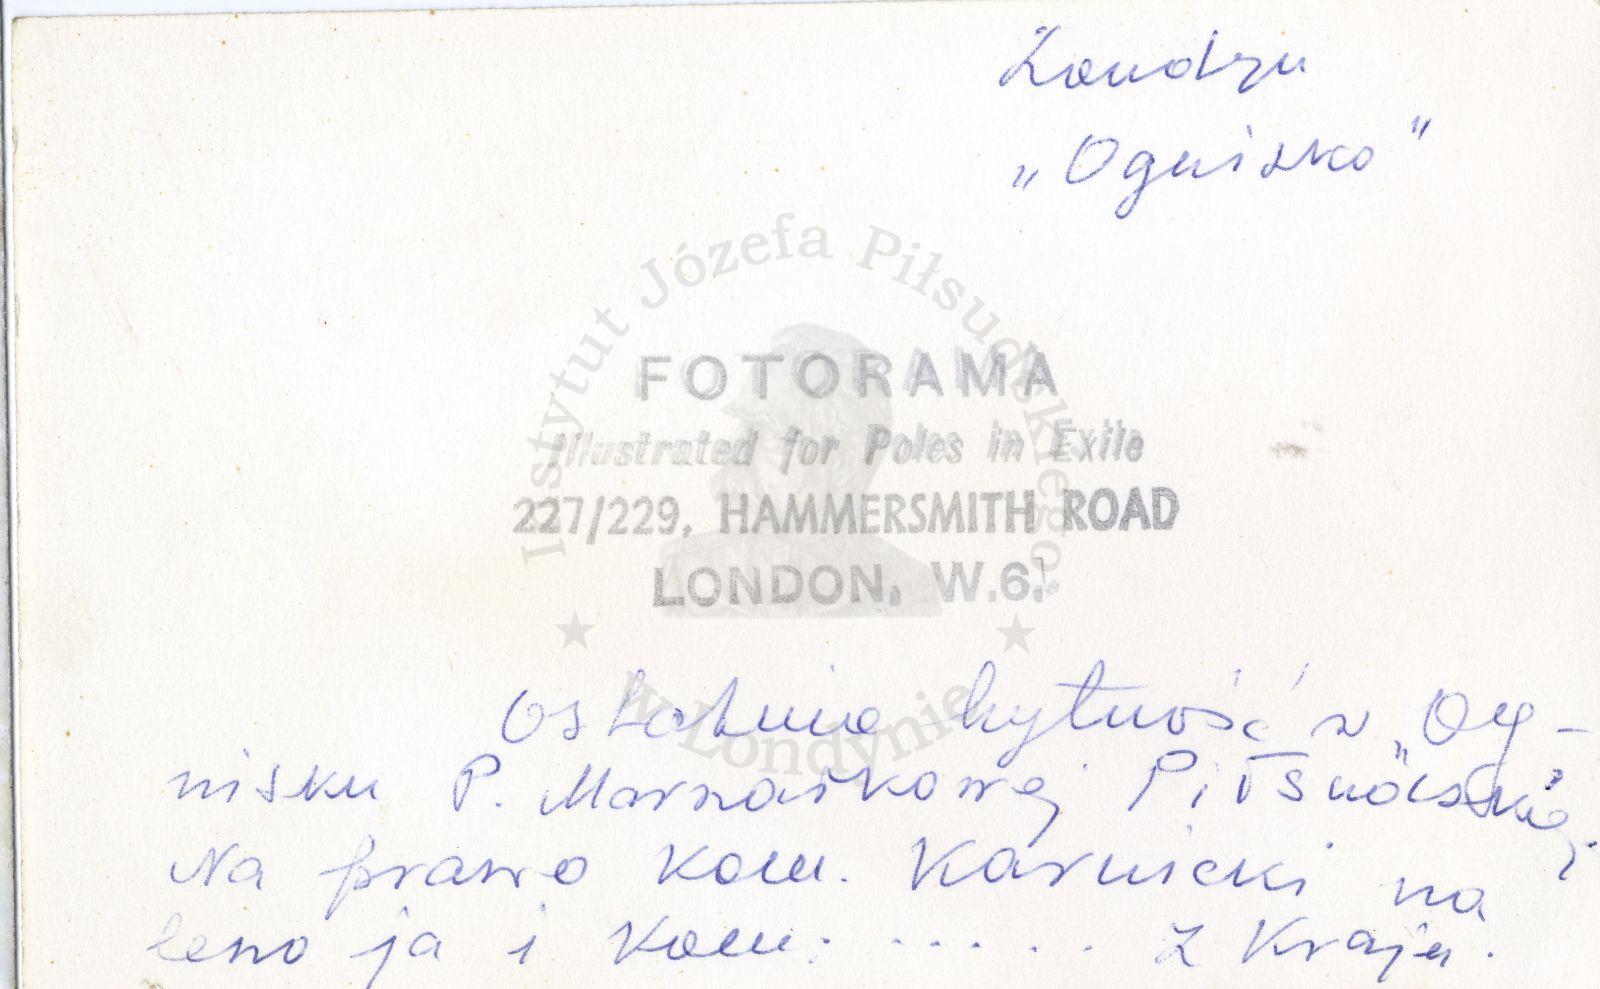 Londyn
„Ognisko”
Instytut Józefa Piłsudskiego
w Londynie
FOTORAMA
Illustrated for Poles in Exile
227/229, HAMMERSMITH ROAD
LONDON, W.6.
Ostatnia bytność w „Og-
nisku” P. Marszałkowej Piłsudskiej.
Na prawo kom. Karnicki na
lewo ja i kom. . . . . . z Kraju.